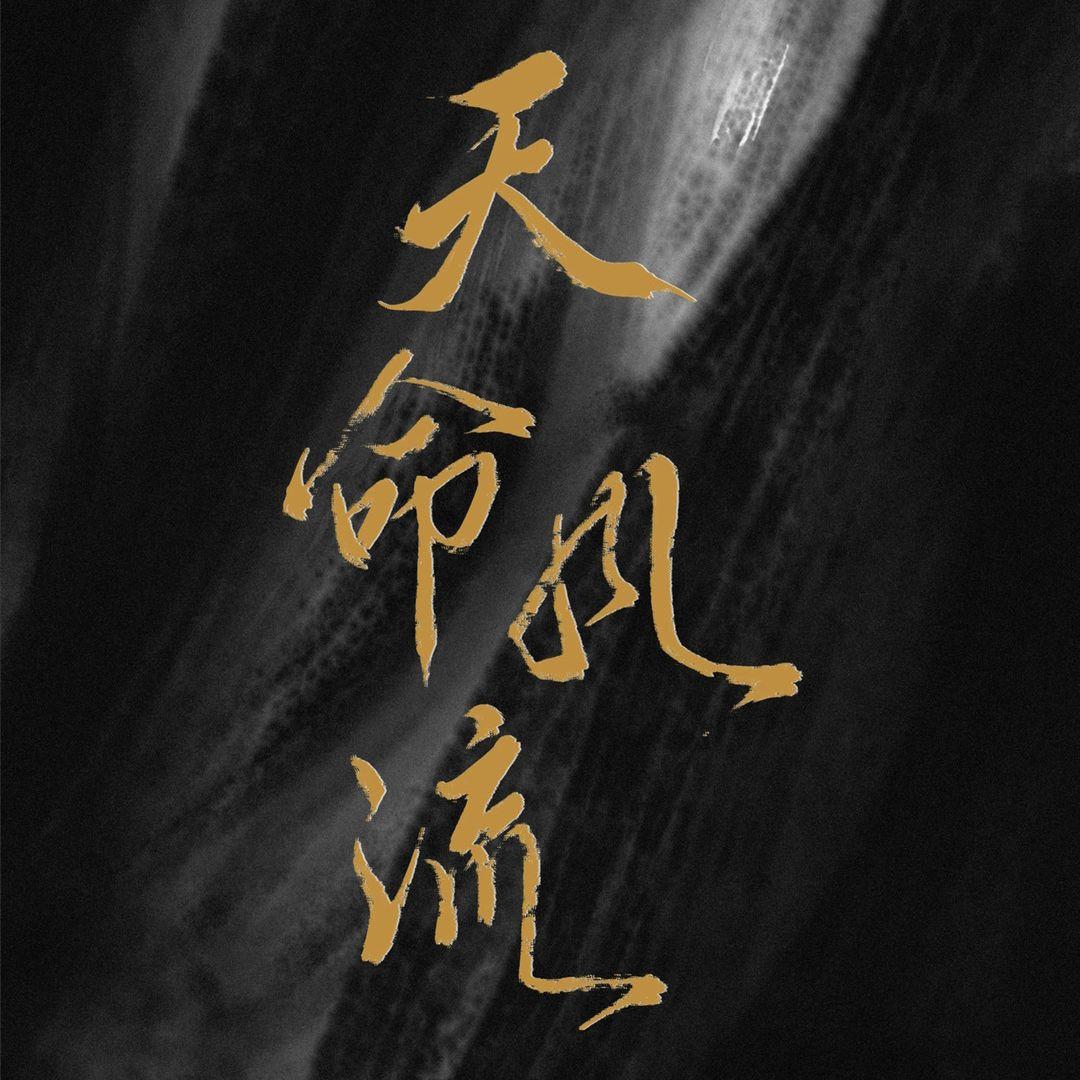 天命风流